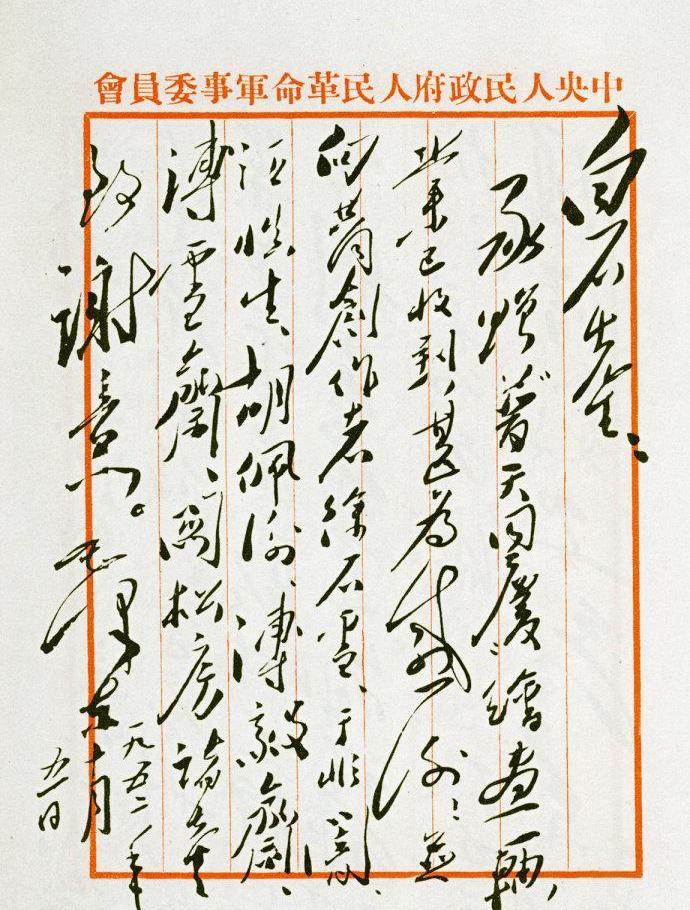 中央人民政府人民革命軍事委員會
白石先生：
承贈普天同慶繪畫一軸，
業已收到，甚為感謝！並
向共同創作者徐石雪、于非闇、
汪慎生、胡佩衡、溥毅齋、
溥雪齋、關松房諸先生
致謝意。毛澤东
一九五二年
十月
五日